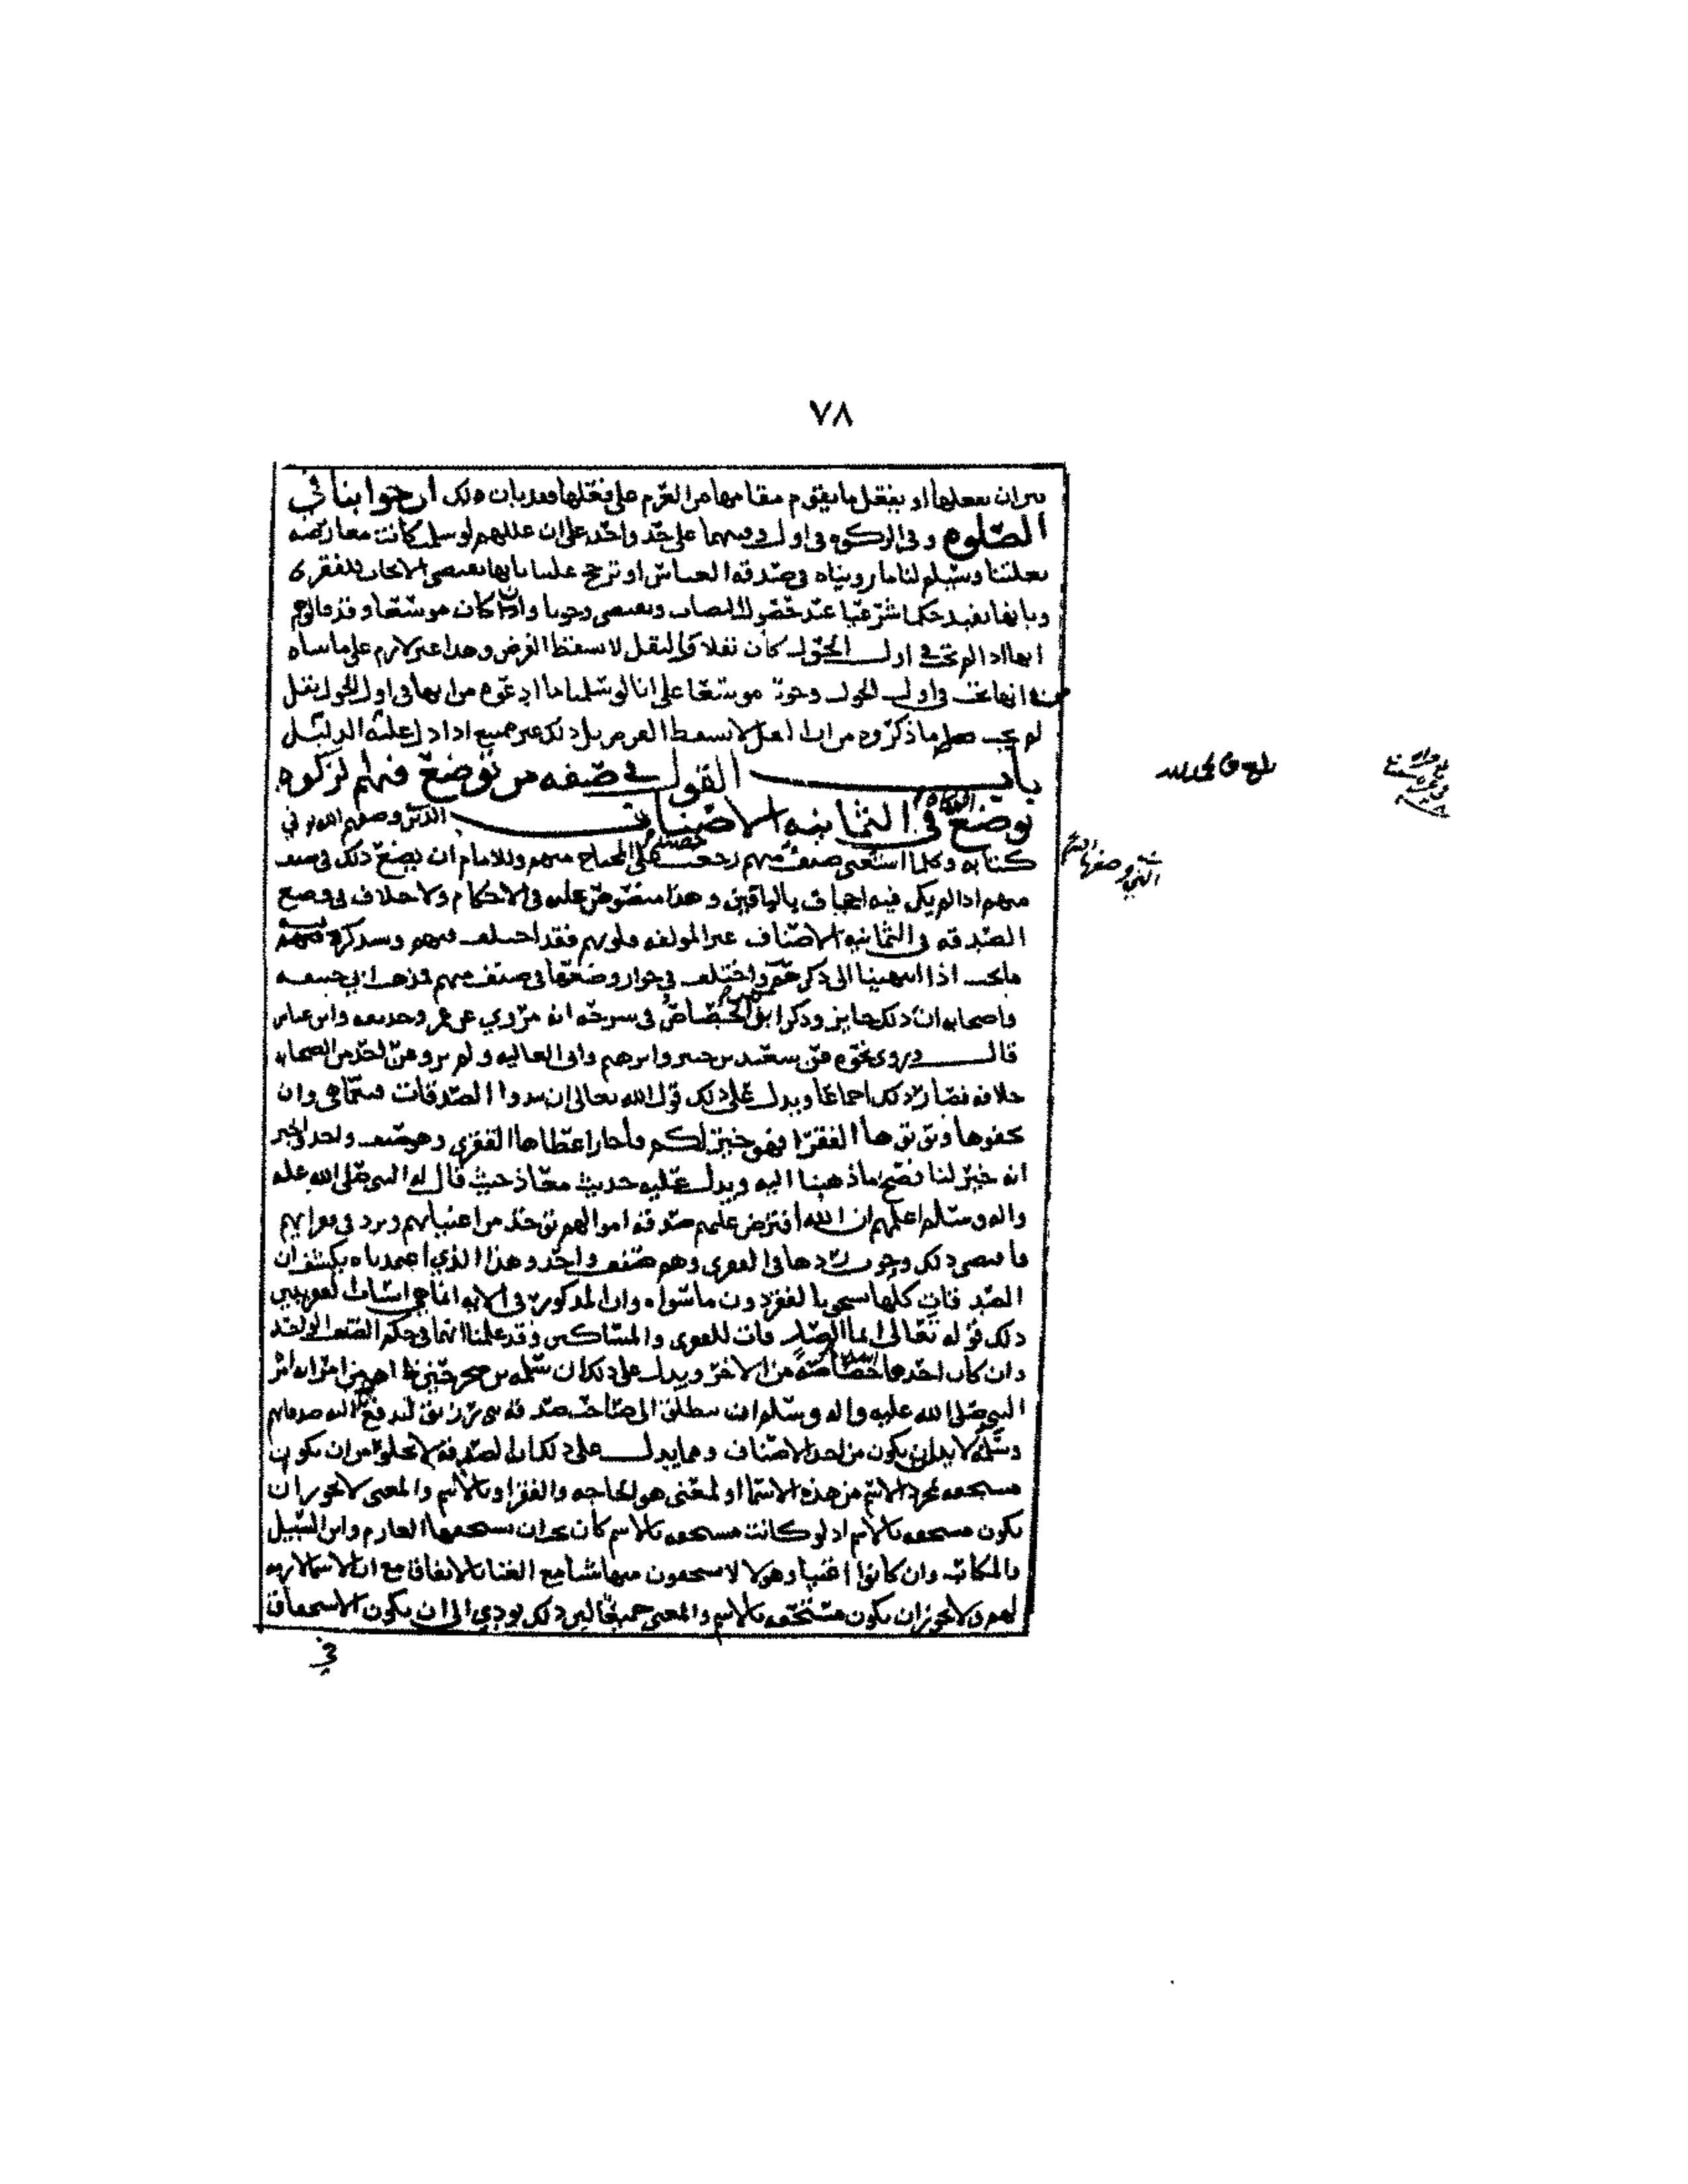 ٧٨
بين ان يفعلها او يفعل ما يقوم مقامها من العزم على فعلها وقد بان ذلك ارجوا بنا في
الصلوه وفي الزكوه في اول وقتهما على حد واحد على ان عللهم لو سلمت كانت معارضه
بعلتنا وسلم لنا ما رويناه في صدقه العباس او ترجح علتنا بانها تقتضي الايجاب للفقرى
وبانها تفيد حكما شرعيا عند حضول النصاب وتقتضي وجوبا وان كان موسعا
انها اذا لم تجب في اول الحول كان نفلا والنفل لا يسقط الفرض وهذا غير لازم على ما بيناه
من انها تجب في اول الحول وجوبا موسعا على انا لو سلمنا ما ادعوه من انها في اول الحول نفل
لم يجب ما ذكروه من ان النفل لا يسقط الفرض بل ذلك غير ممتنع اذا دل عليه الدليل
باب القول في صفه من توضع فيهم الزكوه
توضع الزكاه في الثمانيه الاصناف الذين وصفهم الله في
كتابه وكلما استغنى صنف منهم رجعت حصتهم على المحتاج منهم وللامام ان يضع ذلك في صنف
منهم اذا لم يكن فيه اجحاف بالباقين وهذا منصوص عليه في الاحكام ولا خلاف في وضع
الصدقه في الثمانيه الاصناف غير المولفه قلوبهم فقد اختلف فيهم وسنذكر فيه
ما يجب اذا انتهينا الى ذكرهم واختلف في جواز وضعها في صنف منهم فذهب ابو حنيفه
واصحابه ان ذلك جايز وذكر ابو بكر الجصاص في شرحه انه مروي عن عمر وحذيفه وابن عباس
قال وروى نحوه عن سعيد بن جبير وابراهيم وابي العاليه ولم يرو عن احد من الصحابه
خلافه فصار ذلك اجماعا ويدل على ذلك قول الله تعالى ان تبدوا الصدقات فنعما هي وان
تخفوها وتوتوها الفقرا فهو خير لكم فاجاز اعطاها الفقرى وهم صنف واحد واخبر
انه خير لنا فصح ما ذهبنا اليه ويدل عليه حديث معاذ حيث قال له النبي صلى الله عليه
واله وسلم اعلمهم ان الله افترض عليهم صدقه اموالهم توخذ من اغنيائهم وترد في فقرائهم
فاقتضى ذلك وجوب ردها في الفقرى وهم صنف واحد وهذا الذي اعتمدناه يكشف ان
الصدقات كلها تستحق بالفقر دون ما سواه وان المذكور في الايه انما هي اسباب الفقر يبين
ذلك قوله تعالى انما الصدقات للفقرى والمساكين وقد علمنا انهما في حكم الصنف الواحد
وان كان احدهما اشد خصاصة من الاخر ويدل على ذلك ان سلمه بن صخر حين ظاهر من امراته امر
النبي صلى الله عليه واله وسلم ان ينطلق الى صاحب صدقه بني زريق لتدفع اليه صدقاتهم
وسلمه لا بد ان يكون من احد الاصناف ومما يدل على ذلك ان الصدقه لا تخلوا من ان تكون
مستحقه لمجرد الاسم من هذه الاسما او لمعنى هو الحاجه والفقر او بالاسم والمعنى لا يجوز ان
تكون مستحقه بالاسم اذ لو كانت مستحقه بالاسم كان يجب ان يستحقها الغارم وابن السبيل
والمكاتب وان كانوا اغنيا وهولا لا يستحقون منها شيا مع الغنا بالاتفاق مع ان الاسما لازمه
لهم ولا يجوز ان تكون مستحقه بالاسم والمعنى جميعا لان ذلك يودي الى ان يكون الاستحقاق
في
بلغ قالحمد لله